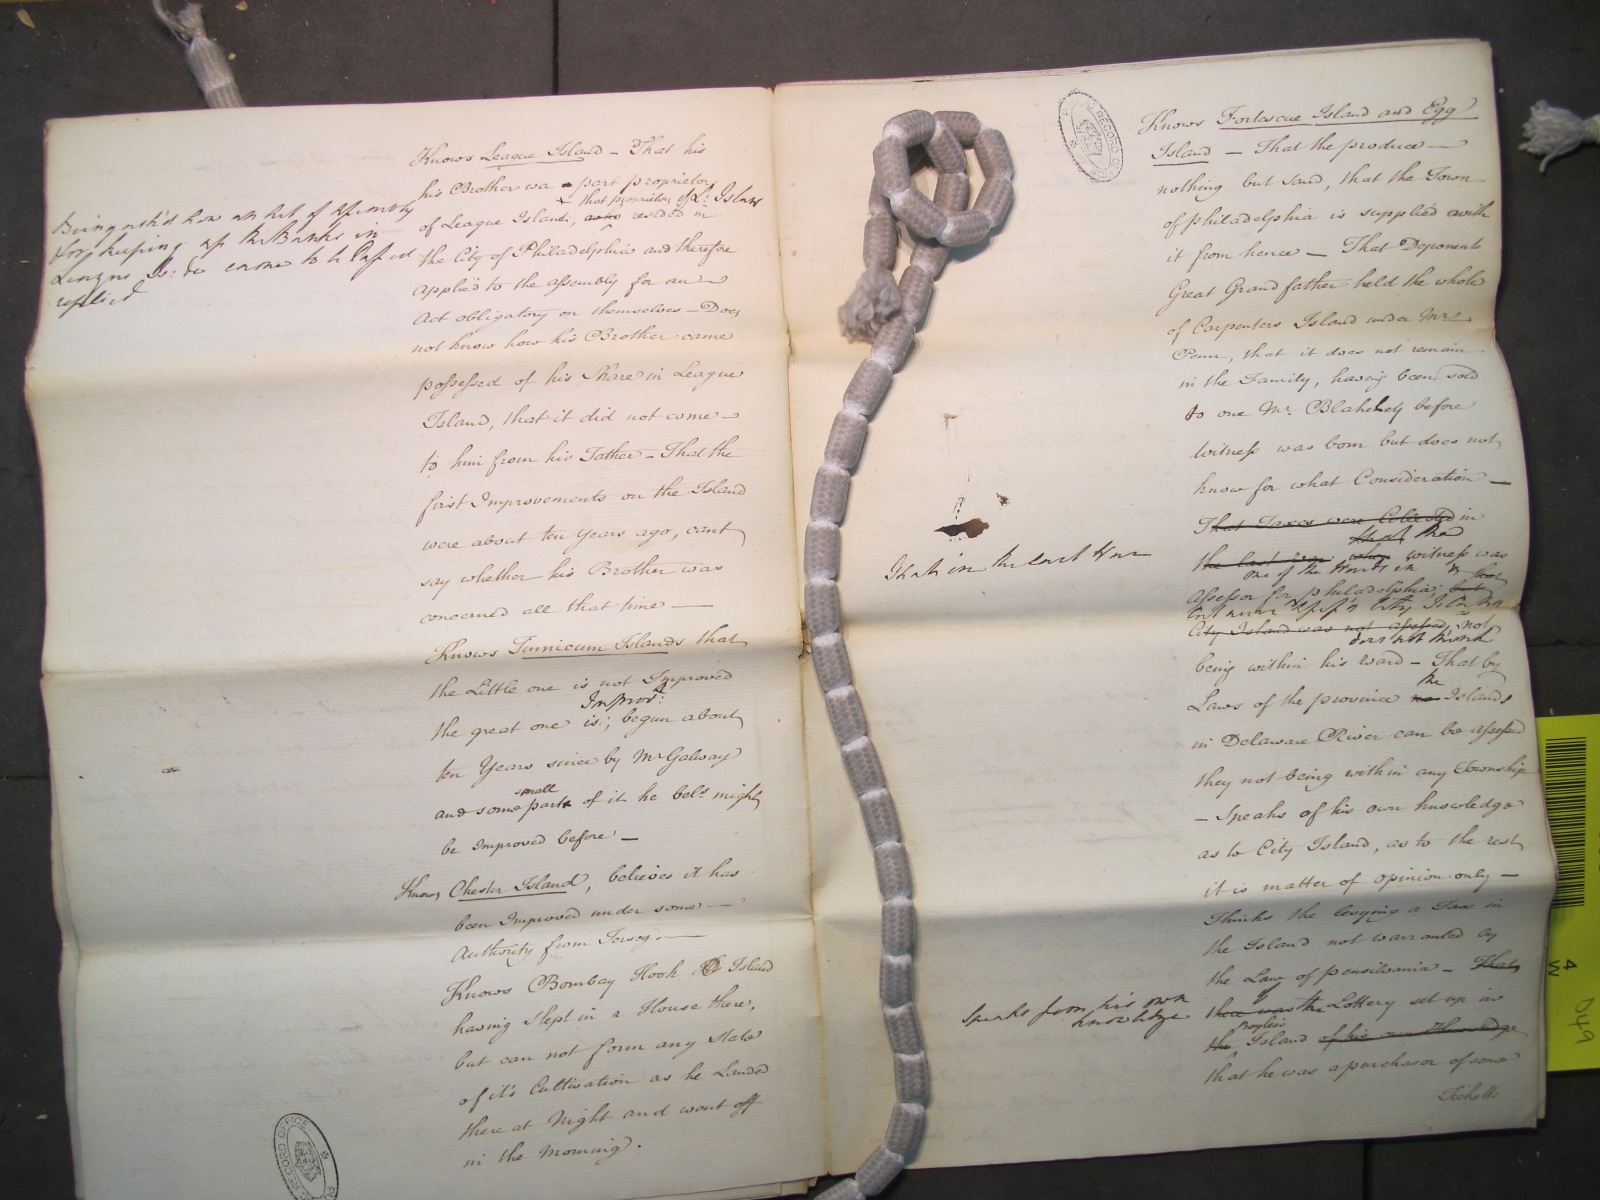 Being ask'd how an Act of Assembly
for keeping up the Banks in
League Is: &c came to be Passed
replied
Knows League Island – That his
his Brother was part proprietor
& that proprietors of L: Island
of League Island, resided in
the City of Philadelphia and therefore
applied to the assembly for an
Act obligatory on themselves – Does
not know how his Brother came
possessed of his Share in League
Island, that it did not come –
to him from his Father – That the
first Improvements on the Island
were about ten Years ago, cant
say whether his Brother was
concerned all that time –
Knows Tinnicum Islands that
the Little one is not Improved
Improv'd:
the great one is; began about
ten Years since by Mr Galway
small
and some part of it he bels might
be Improved before –
Knows Chester Island, believes it has
been Improved under some –
Authority from Jersey. –
Knows Bombay Hook Island
having Slept in a House there,
but can not form any state
of it's Cultivation as he Landed
there at Night and went off
in the Morning.
RECORD OFFICE
PUBLIC RECORD OFFICE
Knows Fortescue Island and Egg
Island – That the produce –
nothing but Sand, that the Town
of philadelphia is supplied with
it from hence – That Deponents
Great Grandfather held the whole
of Carpenters Island under Mr
Penn, that it does not remain
in the Family, having been sold
to one Mr. Blakeley before
Witness was born but does not
know for what Consideration –
That Taxes were Collected in
That in the last War
that the
the last War when witness was
one of the Wards in
Assessor for philadelphia, but that
but never Assess'd City Island the
City Island was not assessed, not
does not think
being within his Ward – That by
the
Laws of the province no Islands
in Delaware River can be assessed
they not being within any Township
– Speaks of his own knowledge
as to City Island, as to the rest
it is matter of opinion only –
Thinks the levying a Tax in
the Island not warranted by
the Law of pensilvania – That
Speaks from his own
knowledge
there was the Lottery set up in
the Island of his own Knowledge
that he was a purchaser of some
Tickets